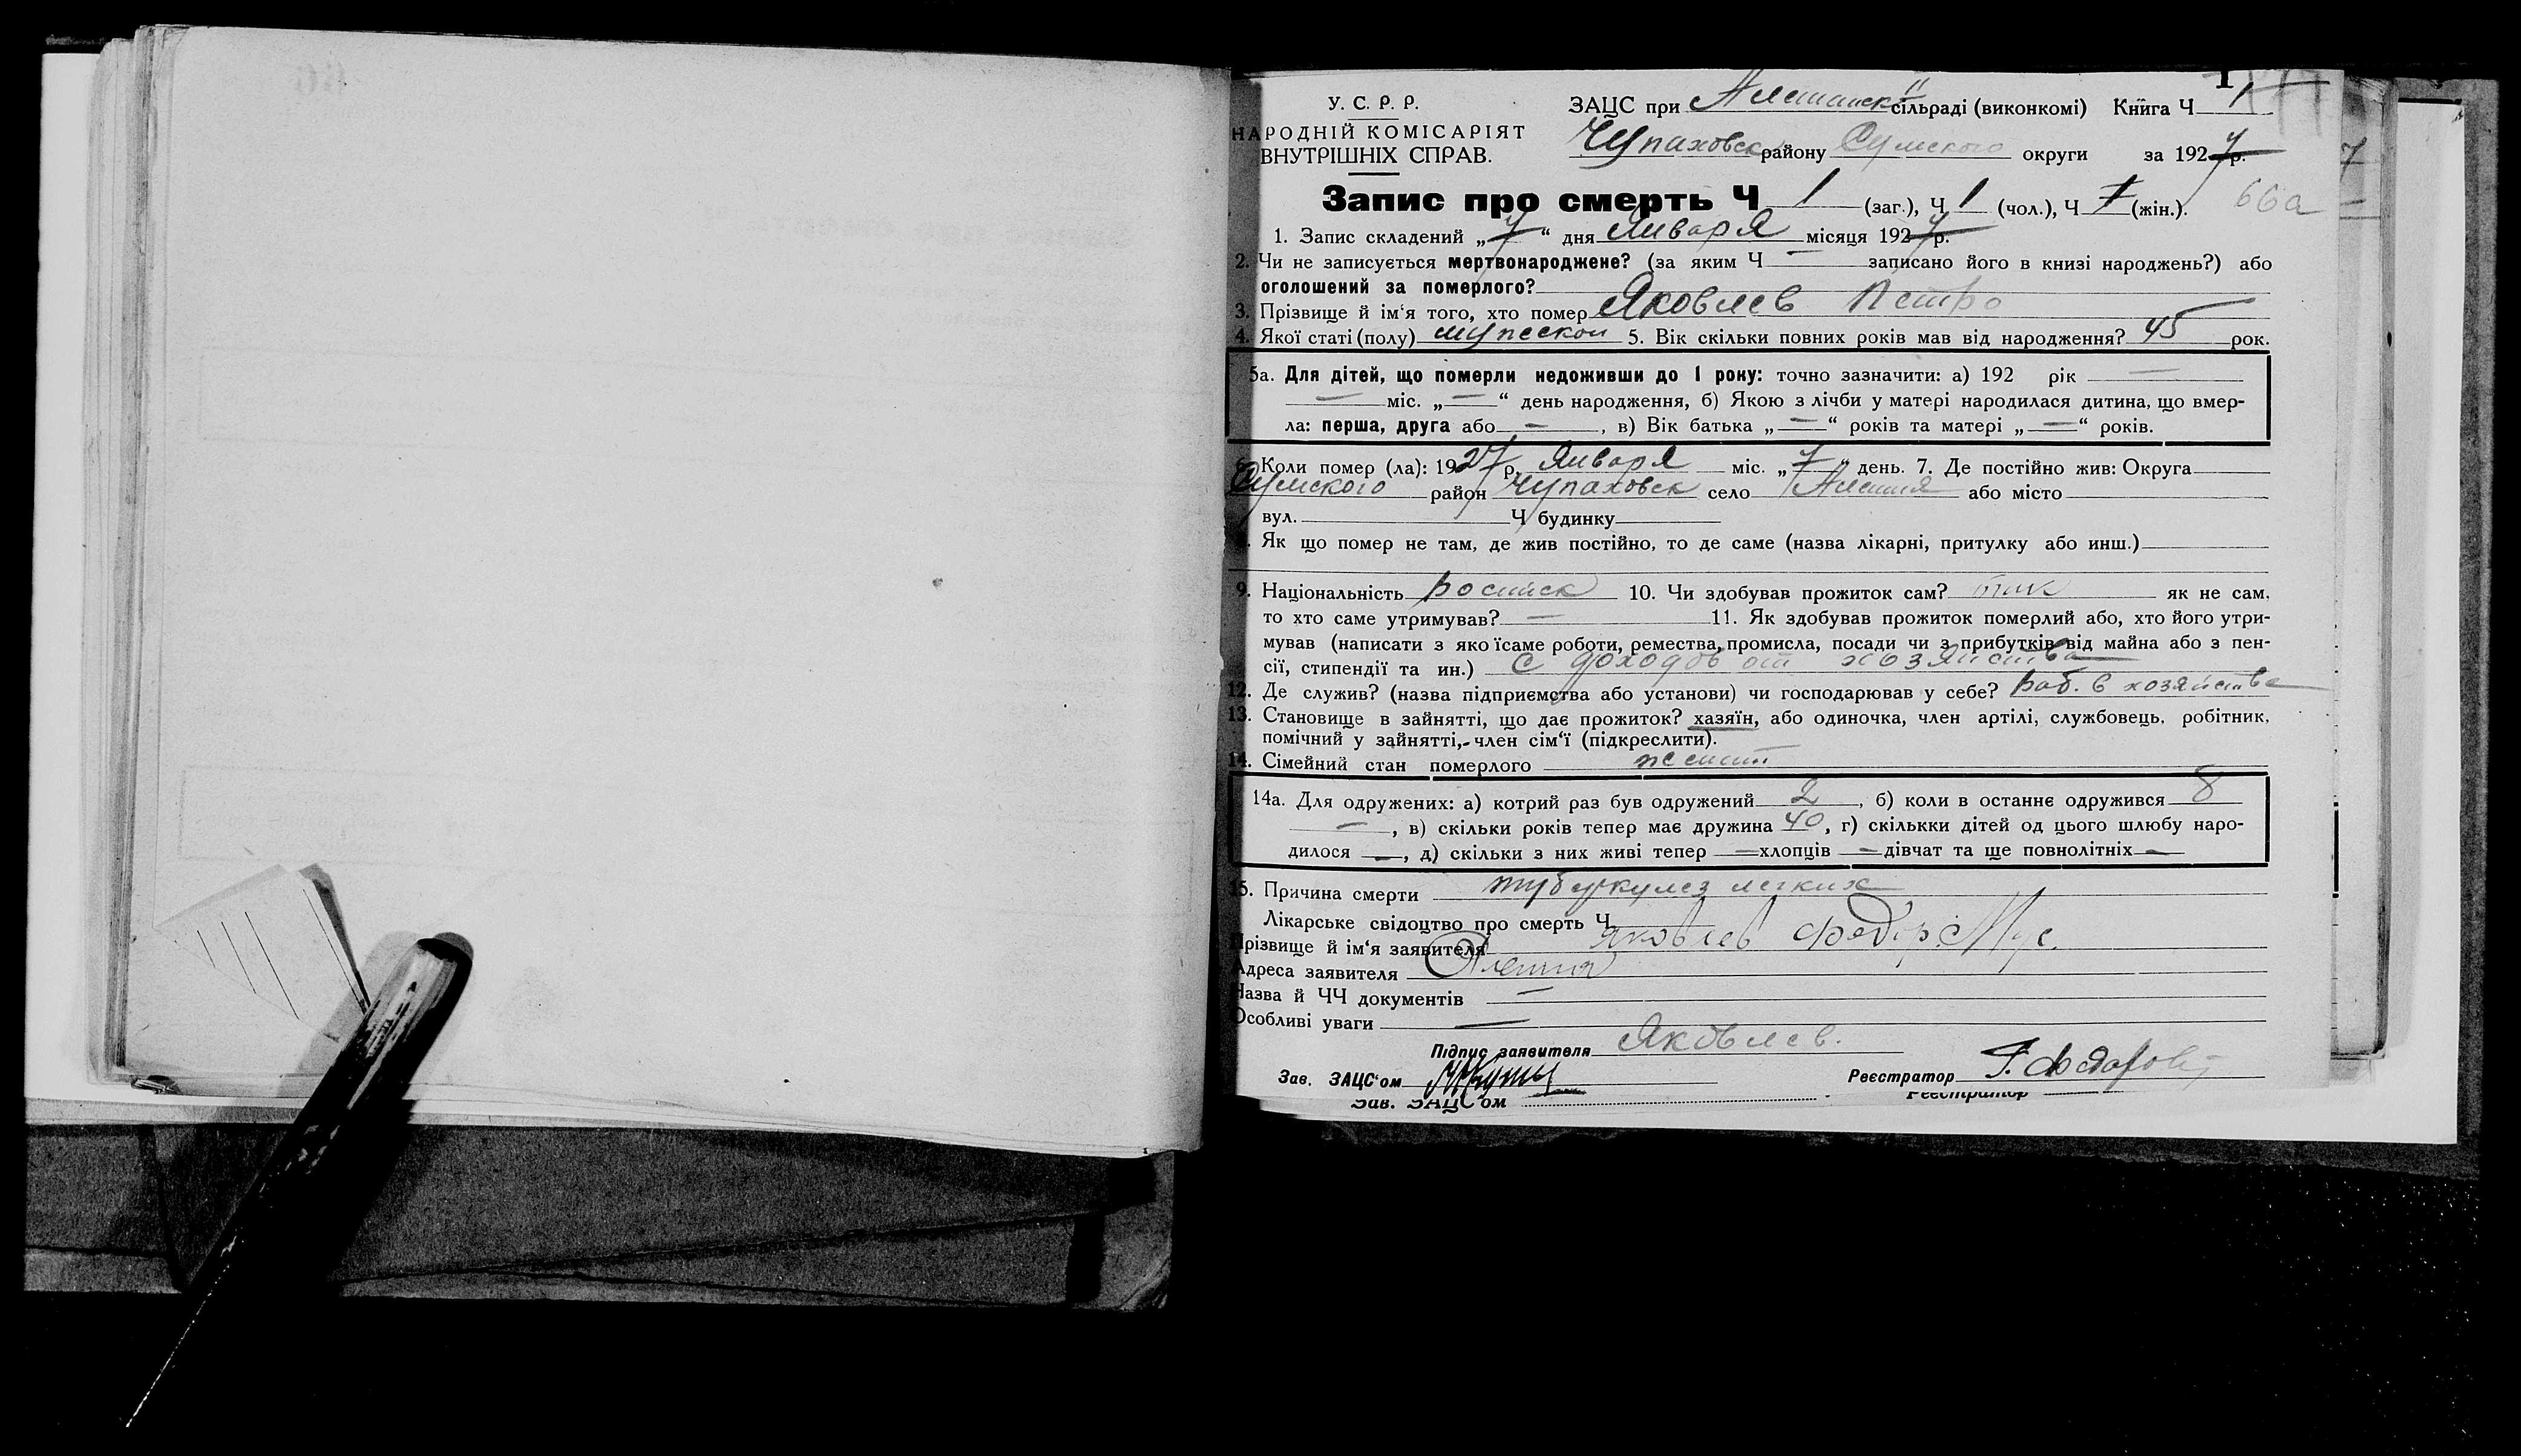 1
У. С. Р. Р.
НАРОДНІЙ КОМІСАРІЯТ
ВНУТРІШНІХ СПРАВ.
ЗАЦС при сільраді (виконкомі) Книга Ч 1
Чупаховск району Сумского округи за 1927 р.
66а
Запис про смерть Ч 1 (заг.), Ч 1 (чол.), Ч (жін.).
1. Запис складений „7“ дня Января місяця 1927 р.
2. Чи не записується мертвонароджене? (за яким Ч — записано його в книзі народжень?) або
оголошений за померлого?
3. Прізвище й ім‘я того, хто помер Яковлев Петро
4. Якої статі (полу) мужескои 5. Вік скільки повних років мав від народження? 45 рок.
5а. Для дітей, що померли недоживши до 1 року: точно зазначити: а) 192 рік —
— міс. „—“ день народження, б) Якою з лічби у матері народилася дитина, що вмер-
ла: перша, друга або —, в) Вік батька „—“ років та матері „—“ років.
6. Коли помер (ла): 1927 р. Января міс. „7“ день. 7. Де постійно жив: Округа
Сумского район Чупаховск село Алешня або місто
вул. Ч будинку
Як що помер не там, де жив постійно, то де саме (назва лікарні, притулку або инш.)
9. Національність 10. Чи здобував прожиток сам? так як не сам,
то хто саме утримував? — 11. Як здобував прожиток померлий або, хто його утри-
мував (написати з яко їсаме роботи, ремества, промисла, посади чи з прибутків від майна або з пен-
сії, стипендії та ин.) с доходов от хозяйства
12. Де служив? (назва підприємства або установи) чи господарював у себе? Раб. в хозяйстве
13. Становище в зайнятті, що дає прожиток? хазяїн, або одиночка, член артілі, службовець, робітник,
помічний у зайнятті,-член сім‘ї (підкреслити).
14. Сімейний стан померлого женит
14а. Для одружених: а) котрий раз був одружений 2, б) коли в останнє одружився 8
—, в) скільки років тепер має дружина 40, г) скількки дітей од цього шлюбу наро-
дилося —, д) скільки з них живі тепер — хлопців — дівчат та ще повнолітніх —
15. Причина смерти туберкулез легких
Лікарське свідоцтво про смерть Ч
Прізвище й ім‘я заявителя Яковлев Федор
Адреса заявителя Алешня
Назва й ЧЧ документів —
Особливі уваги —
Підпис заявителя Яковлев.
Зав. ЗАЦС‘ом Реєстратор
Зав. ЗАЦС‘ом Реєстратор